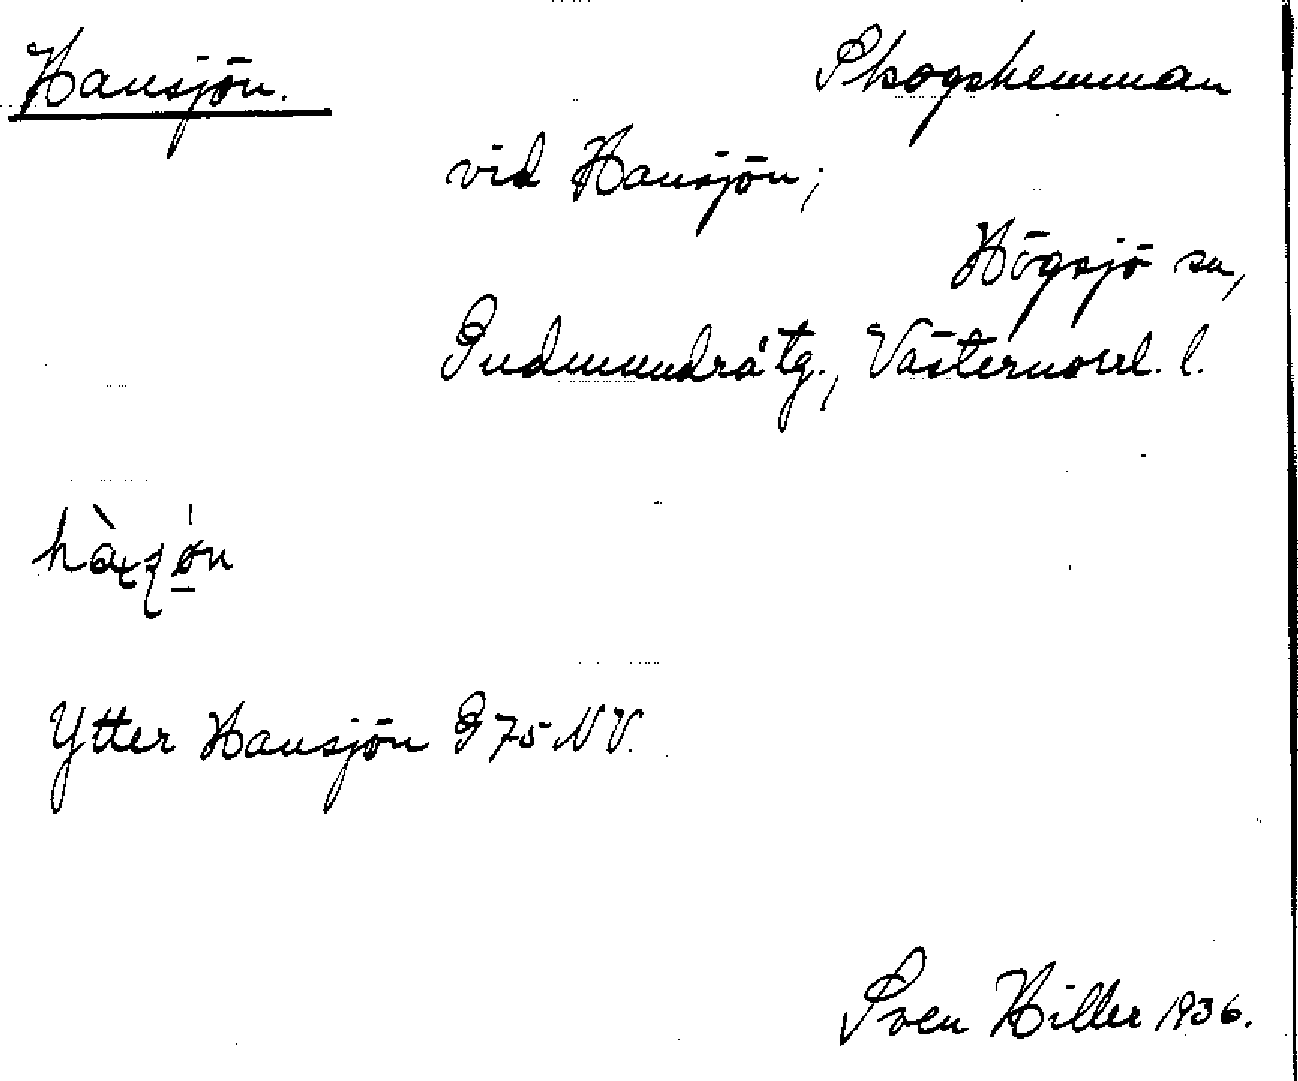 Hansjön. Skogshemman
vid Hansjön;
Högsjö sn,
Gudmundrå tg., Västernorrl. l.
Ytter Hansjön G 75 NV.
Sven Hiller 1936.